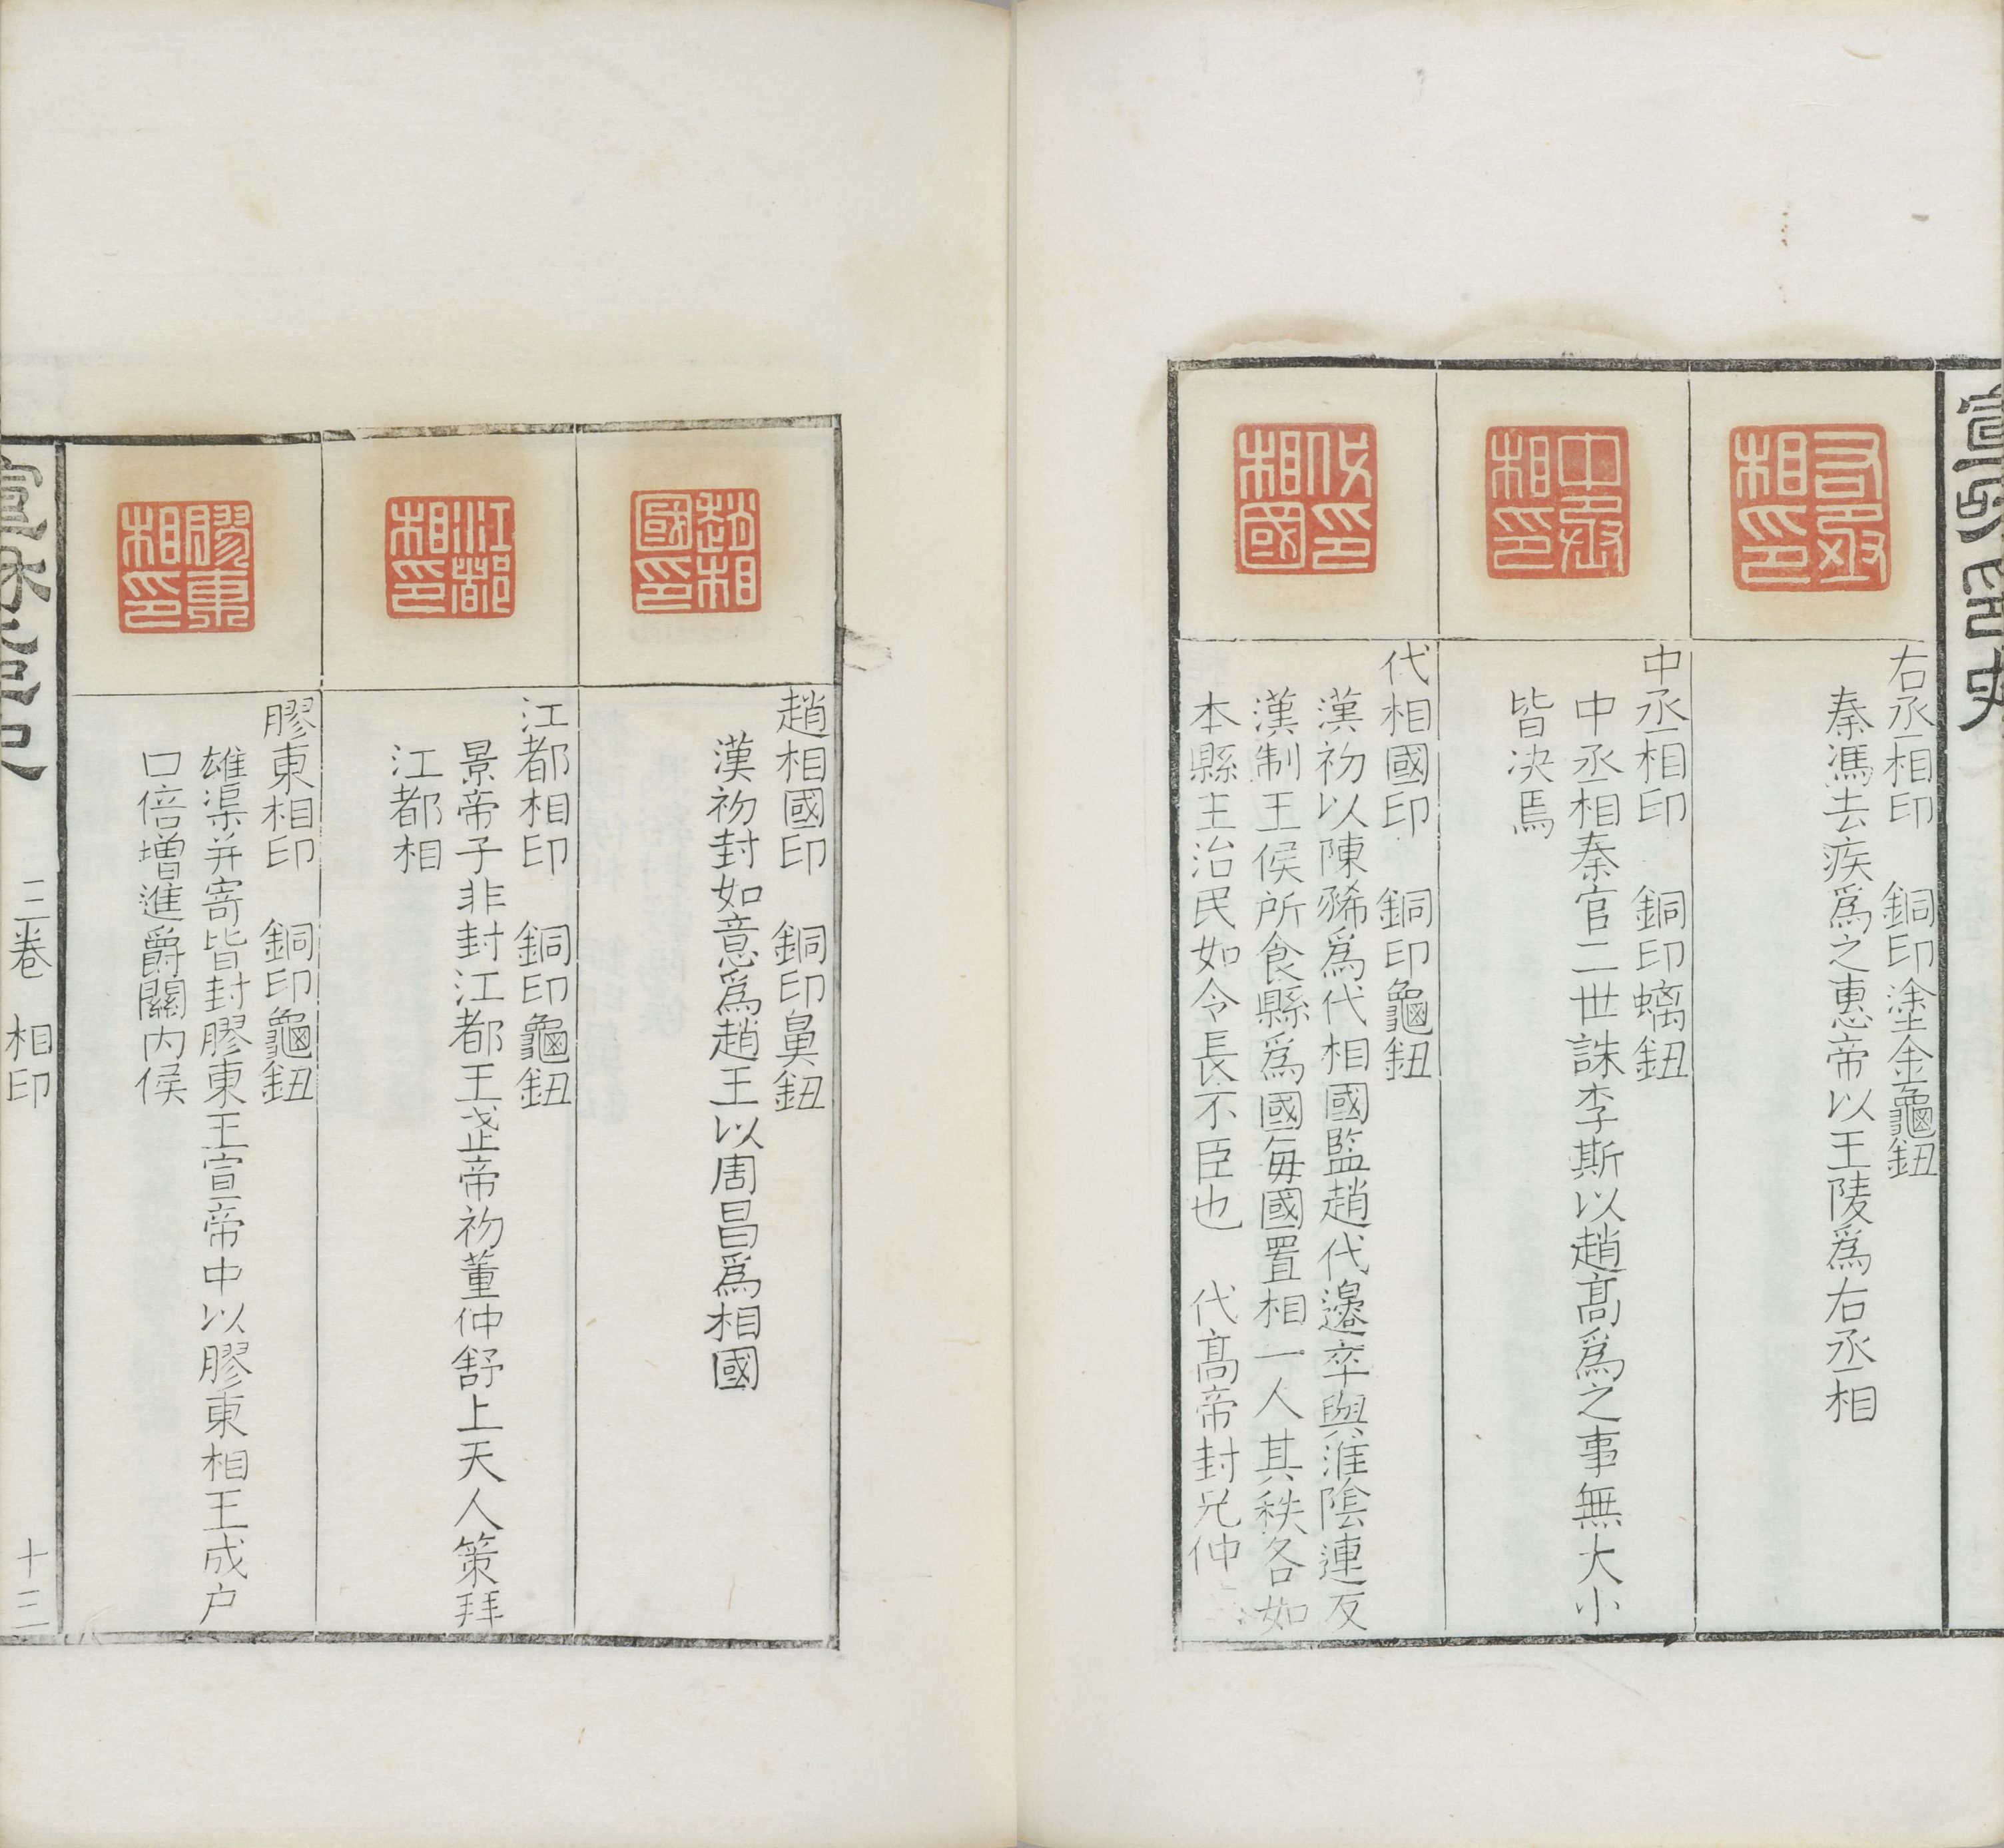 右丞相印
右丞相印　銅印塗金龜鈕
秦馮去疾爲之惠帝以王陵爲右丞相
中丞相印
中丞相印　銅印螭鈕
中丞相秦官二世誅李斯以趙高爲之事無大小
皆决焉
代印相國
代相國印　銅印龜鈕
漢初以陳豨爲代相國監趙代邊卒與淮陰連反
漢制王侯所食縣爲國每國置相一人其秩各如
本縣主治民如令長不臣也　代高帝封兄仲
趙相國印
趙相國印　銅印鼻鈕
漢初封如意爲趙王以周昌爲相國
江都相印
江都相印　銅印龜鈕
景帝子非封江都王武帝初董仲舒上天人策拜
江都相
膠東相印
膠東相印　銅印龜鈕
雄渠并寄皆封膠東王宣帝中以膠東相王成户
口倍增進爵關内侯
三卷　相印　十三